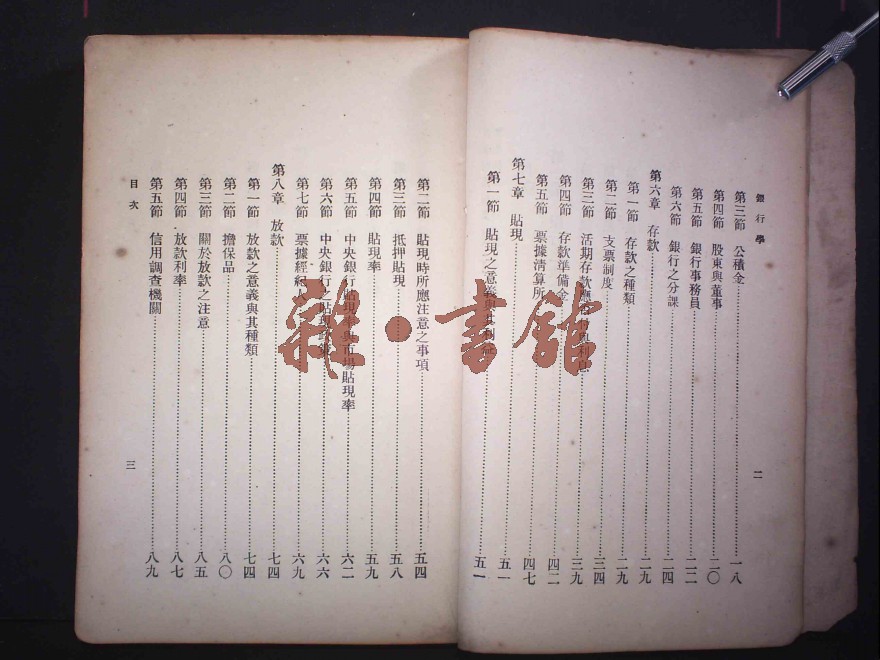 銀行學
第三節 公積金 一八
第四節 股東與董事 二〇
第五節 銀行事務員 二二
第六節 銀行之分課 二四
第六章 存款 二九
第一節 存款之種類 二九
第二節 支票制度 三四
第三節 活期存款應否付與利息 三九
第四節 存款準備金 四二
第五節 票據清算所 四七
第七章 貼現 五一
第一節 貼現之意義與其 五一
二
第二節 貼現時所應注意之事項 五四
第三節 抵押貼現 五八
第四節 貼現率 五九
第五節 中央銀行貼現率與市場貼現率 六二
第六節 中央銀行之貼現政策 六六
第七節 票據經紀人 六九
第八章 放款 七四
第一節 放款之意義與其種類 七四
第二節 擔保品 八〇
第三節 關於放款之注意 八五
第四節 放款利率 八七
第五節 信用調查機關 八九
目次
三
雜·書館